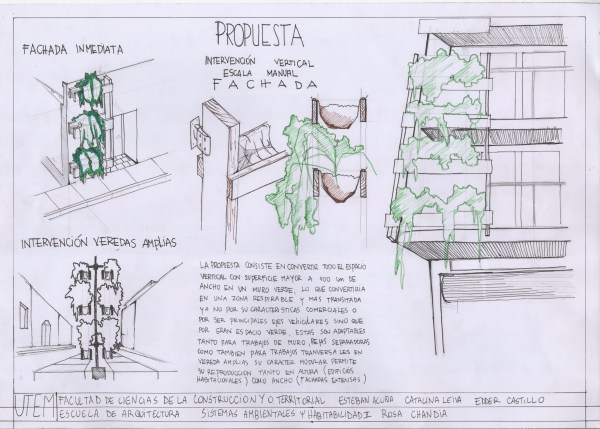 PROPUESTA
FACHADA INMEDIATA
INTERVENCIÓN VERTICAL
ESCALA MANUAL
FACHADA
INTERVENCIÓN VEREDAS AMPLIAS
LA PROPUESTA CONSISTE EN CONVERTIR TODO EL ESPACIO
VERTICAL CON SUPERFICIE MAYOR A 100 CM DE
ANCHO EN UN MURO VERDE, LO QUE CONVERTIRIA
EN UNA ZONA RESPIRABLE Y MAS TRANSITADA
YA NO POR SU CARACTERISTICAS COMERCIALES O
POR SER PRINCIPALES EJES VEHICULARES SINO QUE
POR GRAN ESPACIO VERDE, ESTAS SON ADAPTABLES
TANTO PARA TRABAJOS DE MURO, REJAS SEPARADORAS
COMO TAMBIEN PARA TRABAJOS TRANSVERSALES EN
VEREDA AMPLIAS SU CARACTER MODULAR PERMITE
SU REPRODUCCION TANTO EN ALTURA (EDIFICIOS
HABITACIONALES) COMO ANCHO (FACHADAS EXTENSAS)
UTEM FACULTAD DE CIENCIAS DE LA CONSTRUCCION Y O. TERRITORIAL ESTEBAN ACUÑA CATALINA LEIVA EDDER CASTILLO
ESCUELA DE ARQUITECTURA SISTEMAS AMBIENTALES Y HABITABILIDAD I ROSA CHANDIA